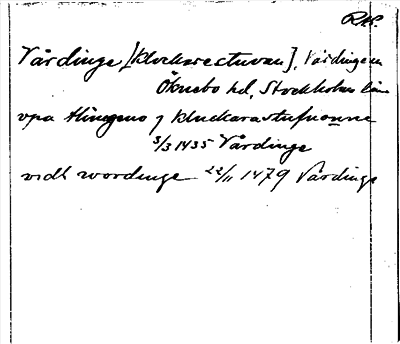 RAP.
Vårdinge [Klockarestuvan], Vårdinge sn
Öknebo hd, Stockholms län
vpa thingeno j kluckarastufuonne
3/3 1435 Vårdinge
vidh wordinge 22/11 1479 Vårdinge